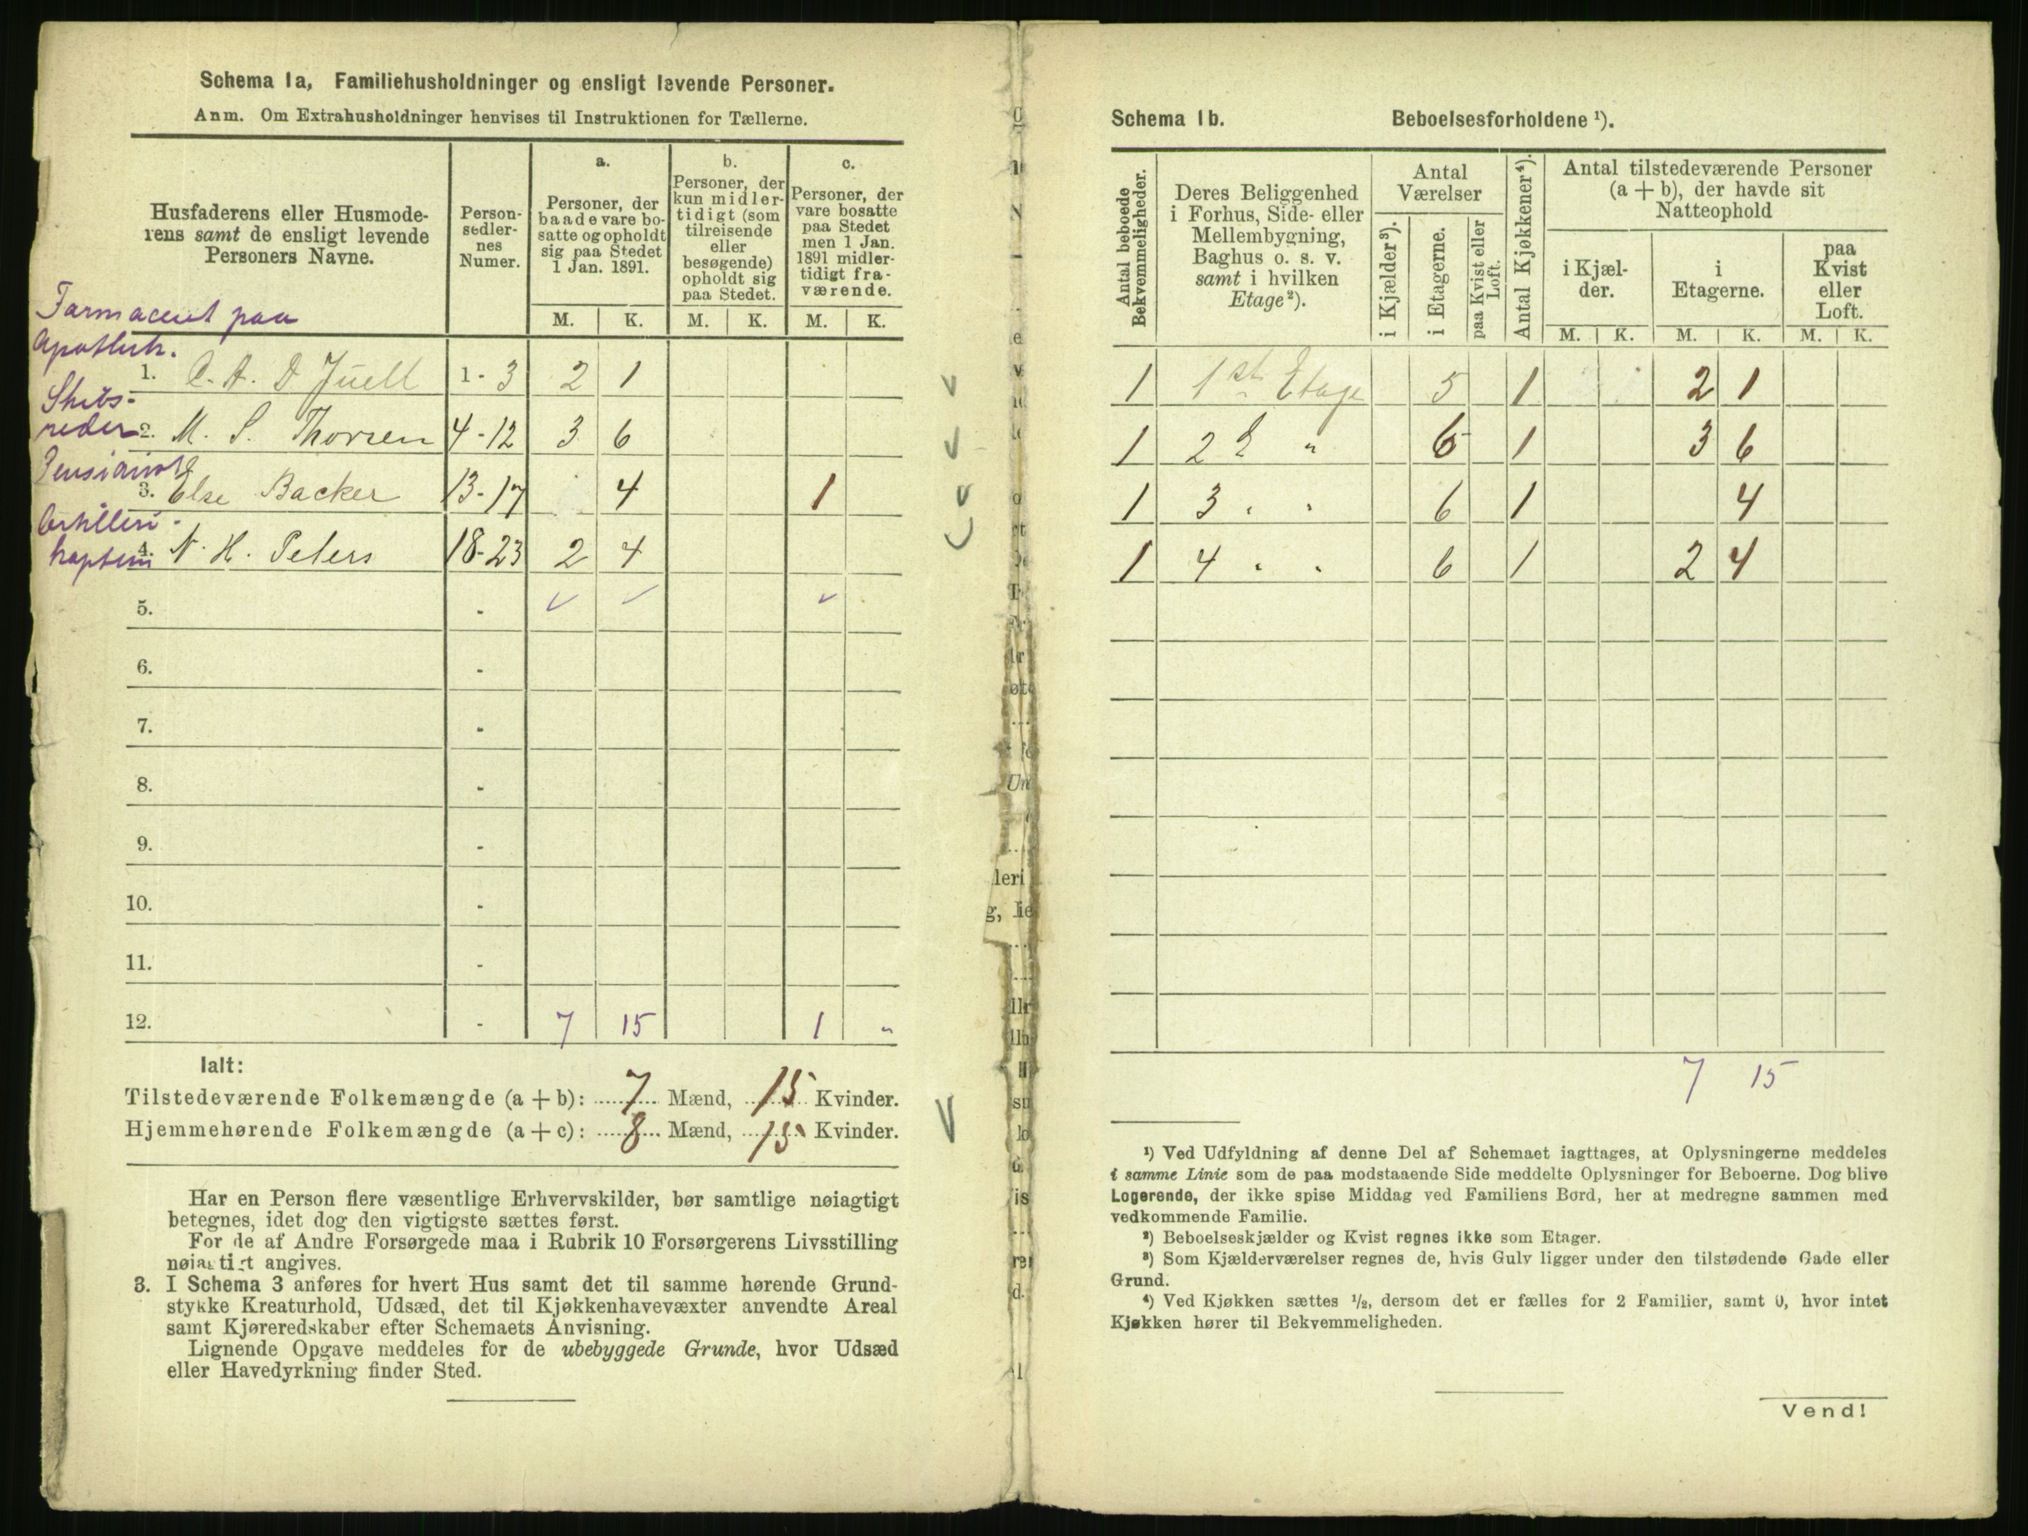 Schema 1a, Familiehusholdninger og ensligt levende Personer.
Anm. Om Extrahusholdninger henvises til Instruktionen for Tællerne.
Husfaderens eller Husmode-
rens samt de ensligt levende
Personers Navne.
Person-
sedler-
nes
Numer.
a.
Personer, der
baade vare bo-
satte og opholdt
sig paa Stedet
1 Jan. 1891.
b.
Personer, der
kun midler-
tidigt (som
tilreisende
eller
besøgende)
opholdt sig
paa Stedet.
c.
Personer, der
vare bosatte
paa Stedet
men 1 Jan.
1891 midler-
tidigt fra-
værende.
M. K. M. K. M. K.
Farmaceut paa
Apothek.
1. C. A. D Juell 1 - 3 2 1
Skibs-
reder
2. M. S. Thorsen 4 - 12 3 6
3. Else Backer 13 - 17 4 1
Artilleri-
kaptein
4. N. H. Peters 18 - 23 2 4
5. - ✓ ✓ ✓
6. -
7. -
8. -
9. -
10. -
11. -
12. - 7 15 1 "
Ialt:
Tilstedeværende Folkemængde (a + b): 7 Mænd, 15 Kvinder.
Hjemmehørende Folkemængde (a + c): 8 Mænd, 15 Kvinder.
Har en Person flere væsentlige Erhvervskilder, bør samtlige nøiagtigt
betegnes, idet dog den vigtigste sættes først.
For de af Andre Forsørgede maa i Rubrik 10 Forsørgerens Livsstilling
nøiagtigt angives.
3. I Schema 3 anføres for hvert Hus samt det til samme hørende Grund-
stykke Kreaturhold, Udsæd, det til Kjøkkenhavevæxter anvendte Areal
samt Kjøreredskaber efter Schemaets Anvisning.
Lignende Opgave meddeles for de ubebyggede Grunde, hvor Udsæd
eller Havedyrkning finder Sted.
Schema 1b. Beboelsesforholdene ¹).
Antal beboede
Bekvemmeligheder.
Deres Beliggenhed
i Forhus, Side- eller
Mellembygning,
Baghus o. s. v.
samt i hvilken
Etage²).
Antal
Værelser
i Kjælder³).
i Etagerne.
paa Kvist eller
Loft.
Antal Kjøkkener⁴).
Antal tilstedeværende Personer
(a + b), der havde sit
Natteophold
i Kjæl-
der.
i
Etagerne.
paa
Kvist
eller
Loft.
M. K. M. K. M. K.
1 1st Etage 5 1 2 1
1 2 E " 6 1 3 6
1 3 " " 6 1 4
1 4 " " 6 1 2 4
7 15
¹) Ved Udfyldning af denne Del af Schemaet iagttages, at Oplysningerne meddeles
i samme Linie som de paa modstaaende Side meddelte Oplysninger for Beboerne. Dog blive
Logerende, der ikke spise Middag ved Familiens Bord, her at medregne sammen med
vedkommende Familie.
²) Beboelseskjælder og Kvist regnes ikke som Etager.
³) Som Kjælderværelser regnes de, hvis Gulv ligger under den tilstødende Gade eller
Grund.
⁴) Ved Kjøkken sættes ¹/₂, dersom det er fælles for 2 Familier, samt 0, hvor intet
Kjøkken hører til Bekvemmeligheden.
Vend!